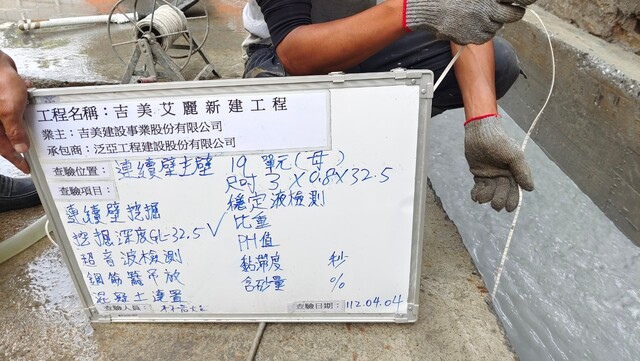 工程名稱：吉美艾麗新建工程
業主：吉美建設事業股份有限公司
承包商：泛亞工程建設股份有限公司
查驗位置：連續壁主壁 19 單元(母)
尺寸 3 X 0.8 X 32.5
查驗項目：
連續壁挖掘
挖掘深度GL-32.5 ✓
超音波檢測
鋼筋籠吊放
混凝土澆置
穩定液檢測
比重
PH值
黏滯度 秒
含砂量 %
查驗人員：
查驗日期：112.04.04